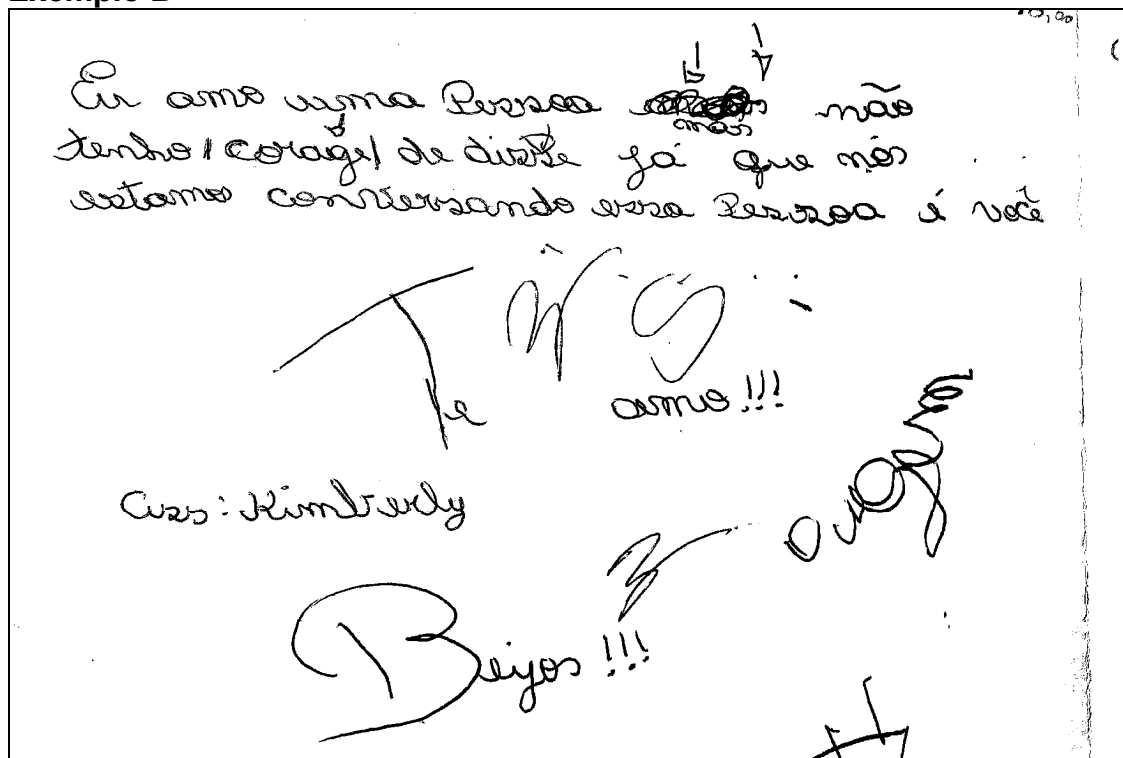 Eu amo uma Pessoa não
mais
tenho corage de dizte já que nós
estamos conversando essa Pessoa é você
Te amo!!!
Ass: Kimberly
Beijos!!!